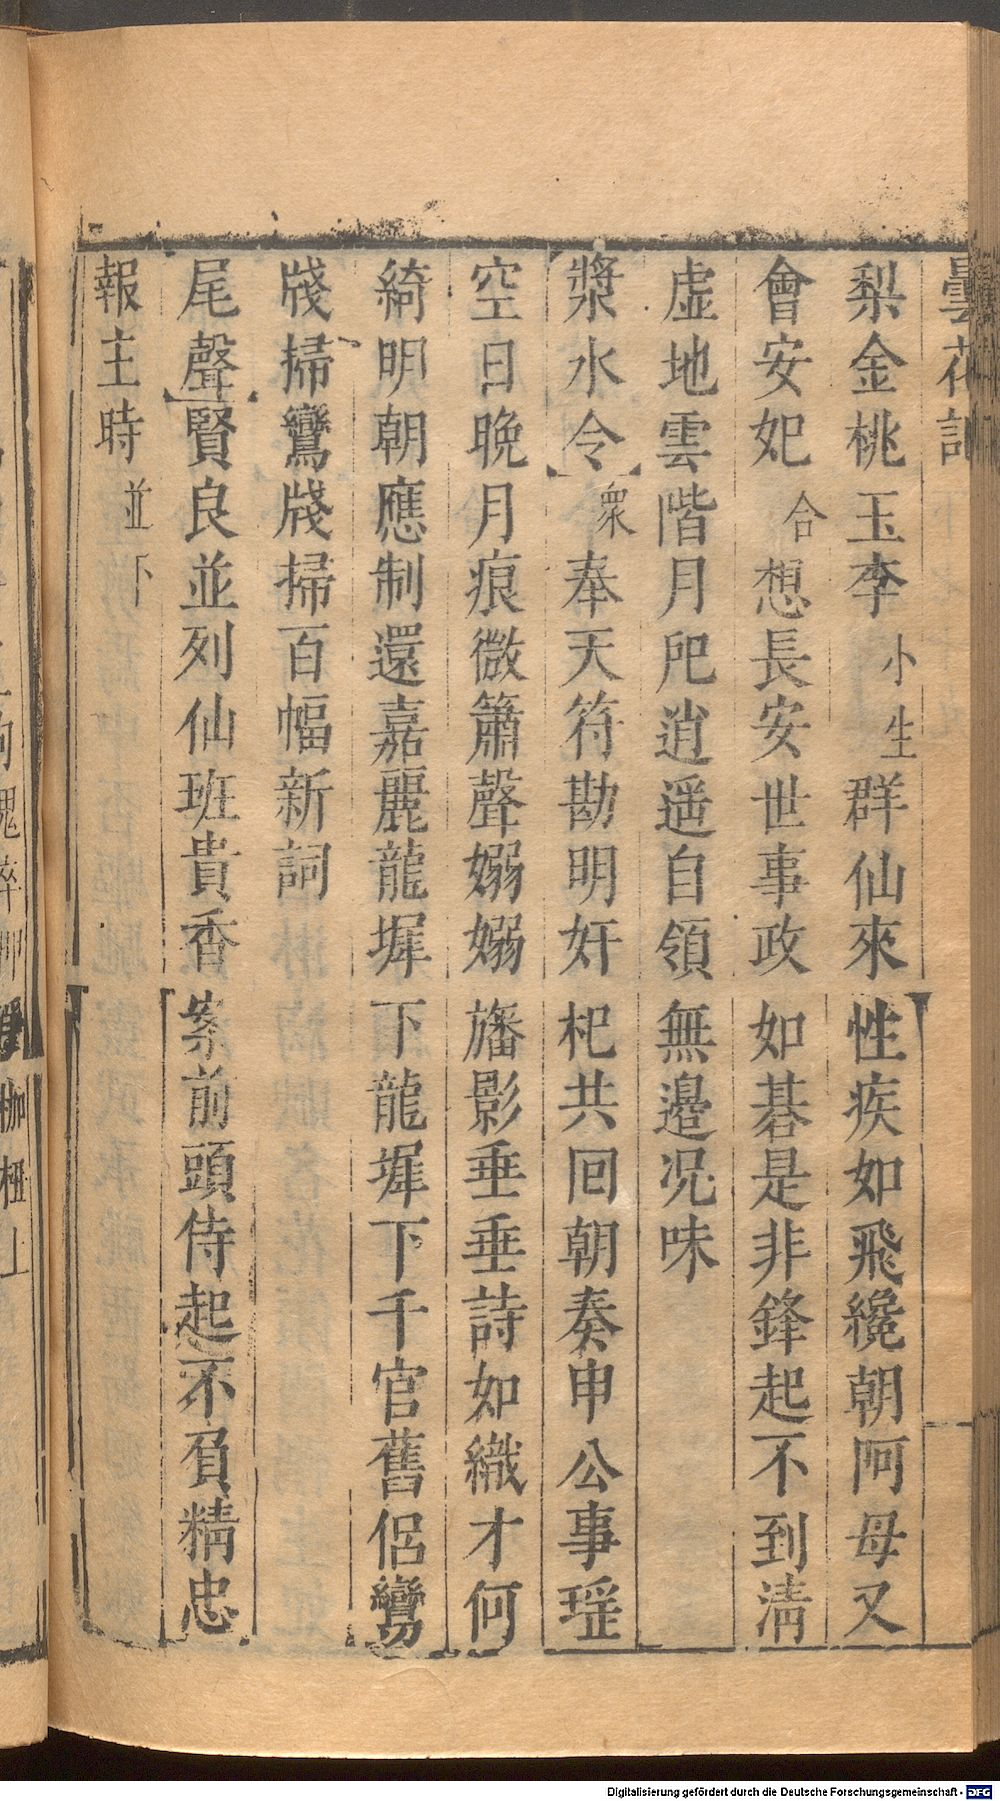 曇花記
梨金桃玉李小生群仙來性疾如飛纔朝阿母又
會安妃合想長安世事政如碁是非鋒起不到清
虛地雲階月戺逍遥自領無邊况味
漿水令衆奉天符勘明奸𣏌共囘朝奏申公事瑶
空日晚月痕微簫聲嫋嫋旛影垂垂詩如織才何
綺明朝應制還嘉麗龍墀下龍墀下千官舊侶鸞
牋掃鸞牋掃百幅新詞
尾聲賢良並列仙班貴香案前頭侍起不負精忠
報主時並下
Digitalisierung gefördert durch die Deutsche Forschungsgemeinschaft - DFG